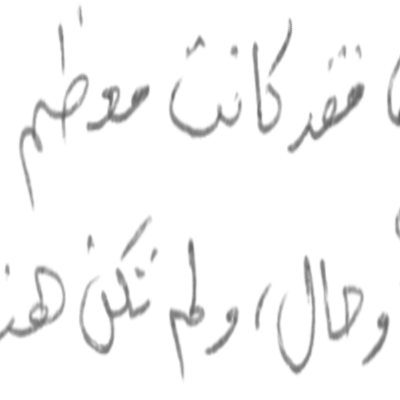 فقد كانت معظم
وحال، ولم تكن هنـ